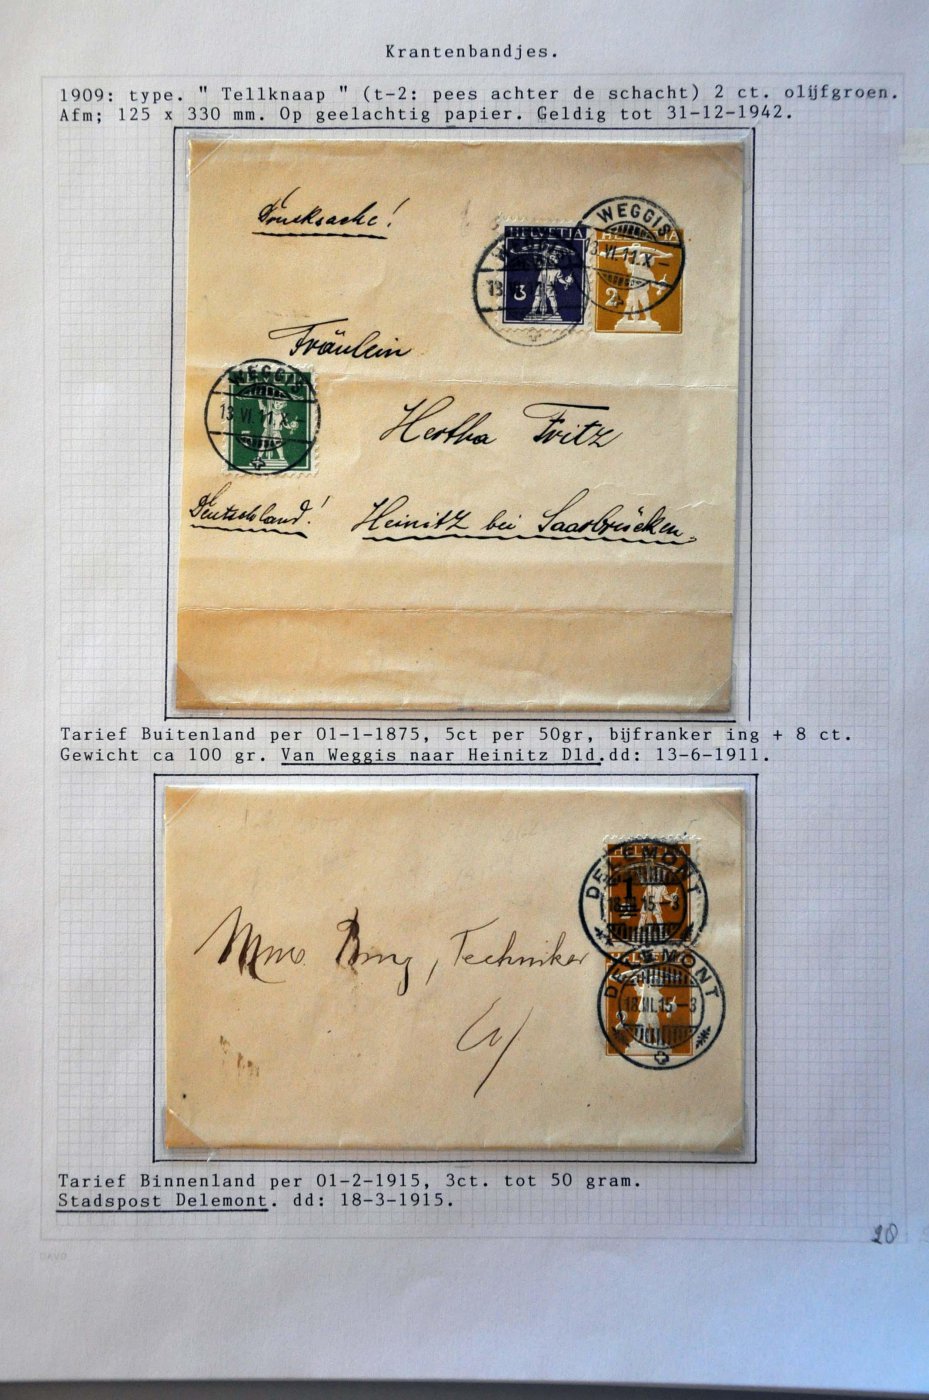 Krantenbandjes.
1909: type. " Tellknaap " (t-2: pees achter de schacht) 2 ct. olijfgroen.
Afm; 125 x 330 mm. Op geelachtig papier. Geldig tot 31-12-1942.
Drucksache!
HELVETIA
3
WEGGIS
13.VI.11.X—
2
Fräulein
WEGGIS
13.VI.11.X—
5
Hertha Fritz
Deutschland!
Heinitz bei Saarbrücken.
Tarief Buitenland per 01-1-1875, 5ct per 50gr, bijfranker ing + 8 ct.
Gewicht ca 100 gr. Van Weggis naar Heinitz Dld.dd: 13-6-1911.
DELEMONT
1
15—3
Techniker
DELEMONT
18.III.15—3
2
Tarief Binnenland per 01-2-1915, 3ct. tot 50 gram.
Stadspost Delemont. dd: 18-3-1915.
20